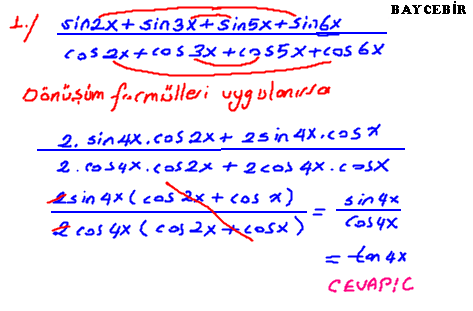 BAYCEBİR
1./ sin2x + sin3x + sin5x + sin6x
cos2x + cos3x + cos5x + cos6x
Dönüşüm formülleri uygulanırsa
2. sin4x.cos2x + 2sin4x.cosx
2.cos4x.cos2x + 2cos4x.cosx
2sin4x(cos2x + cosx) = sin4x
2cos4x(cos2x + cosx) cos4x
= tan4x
CEVAP!C